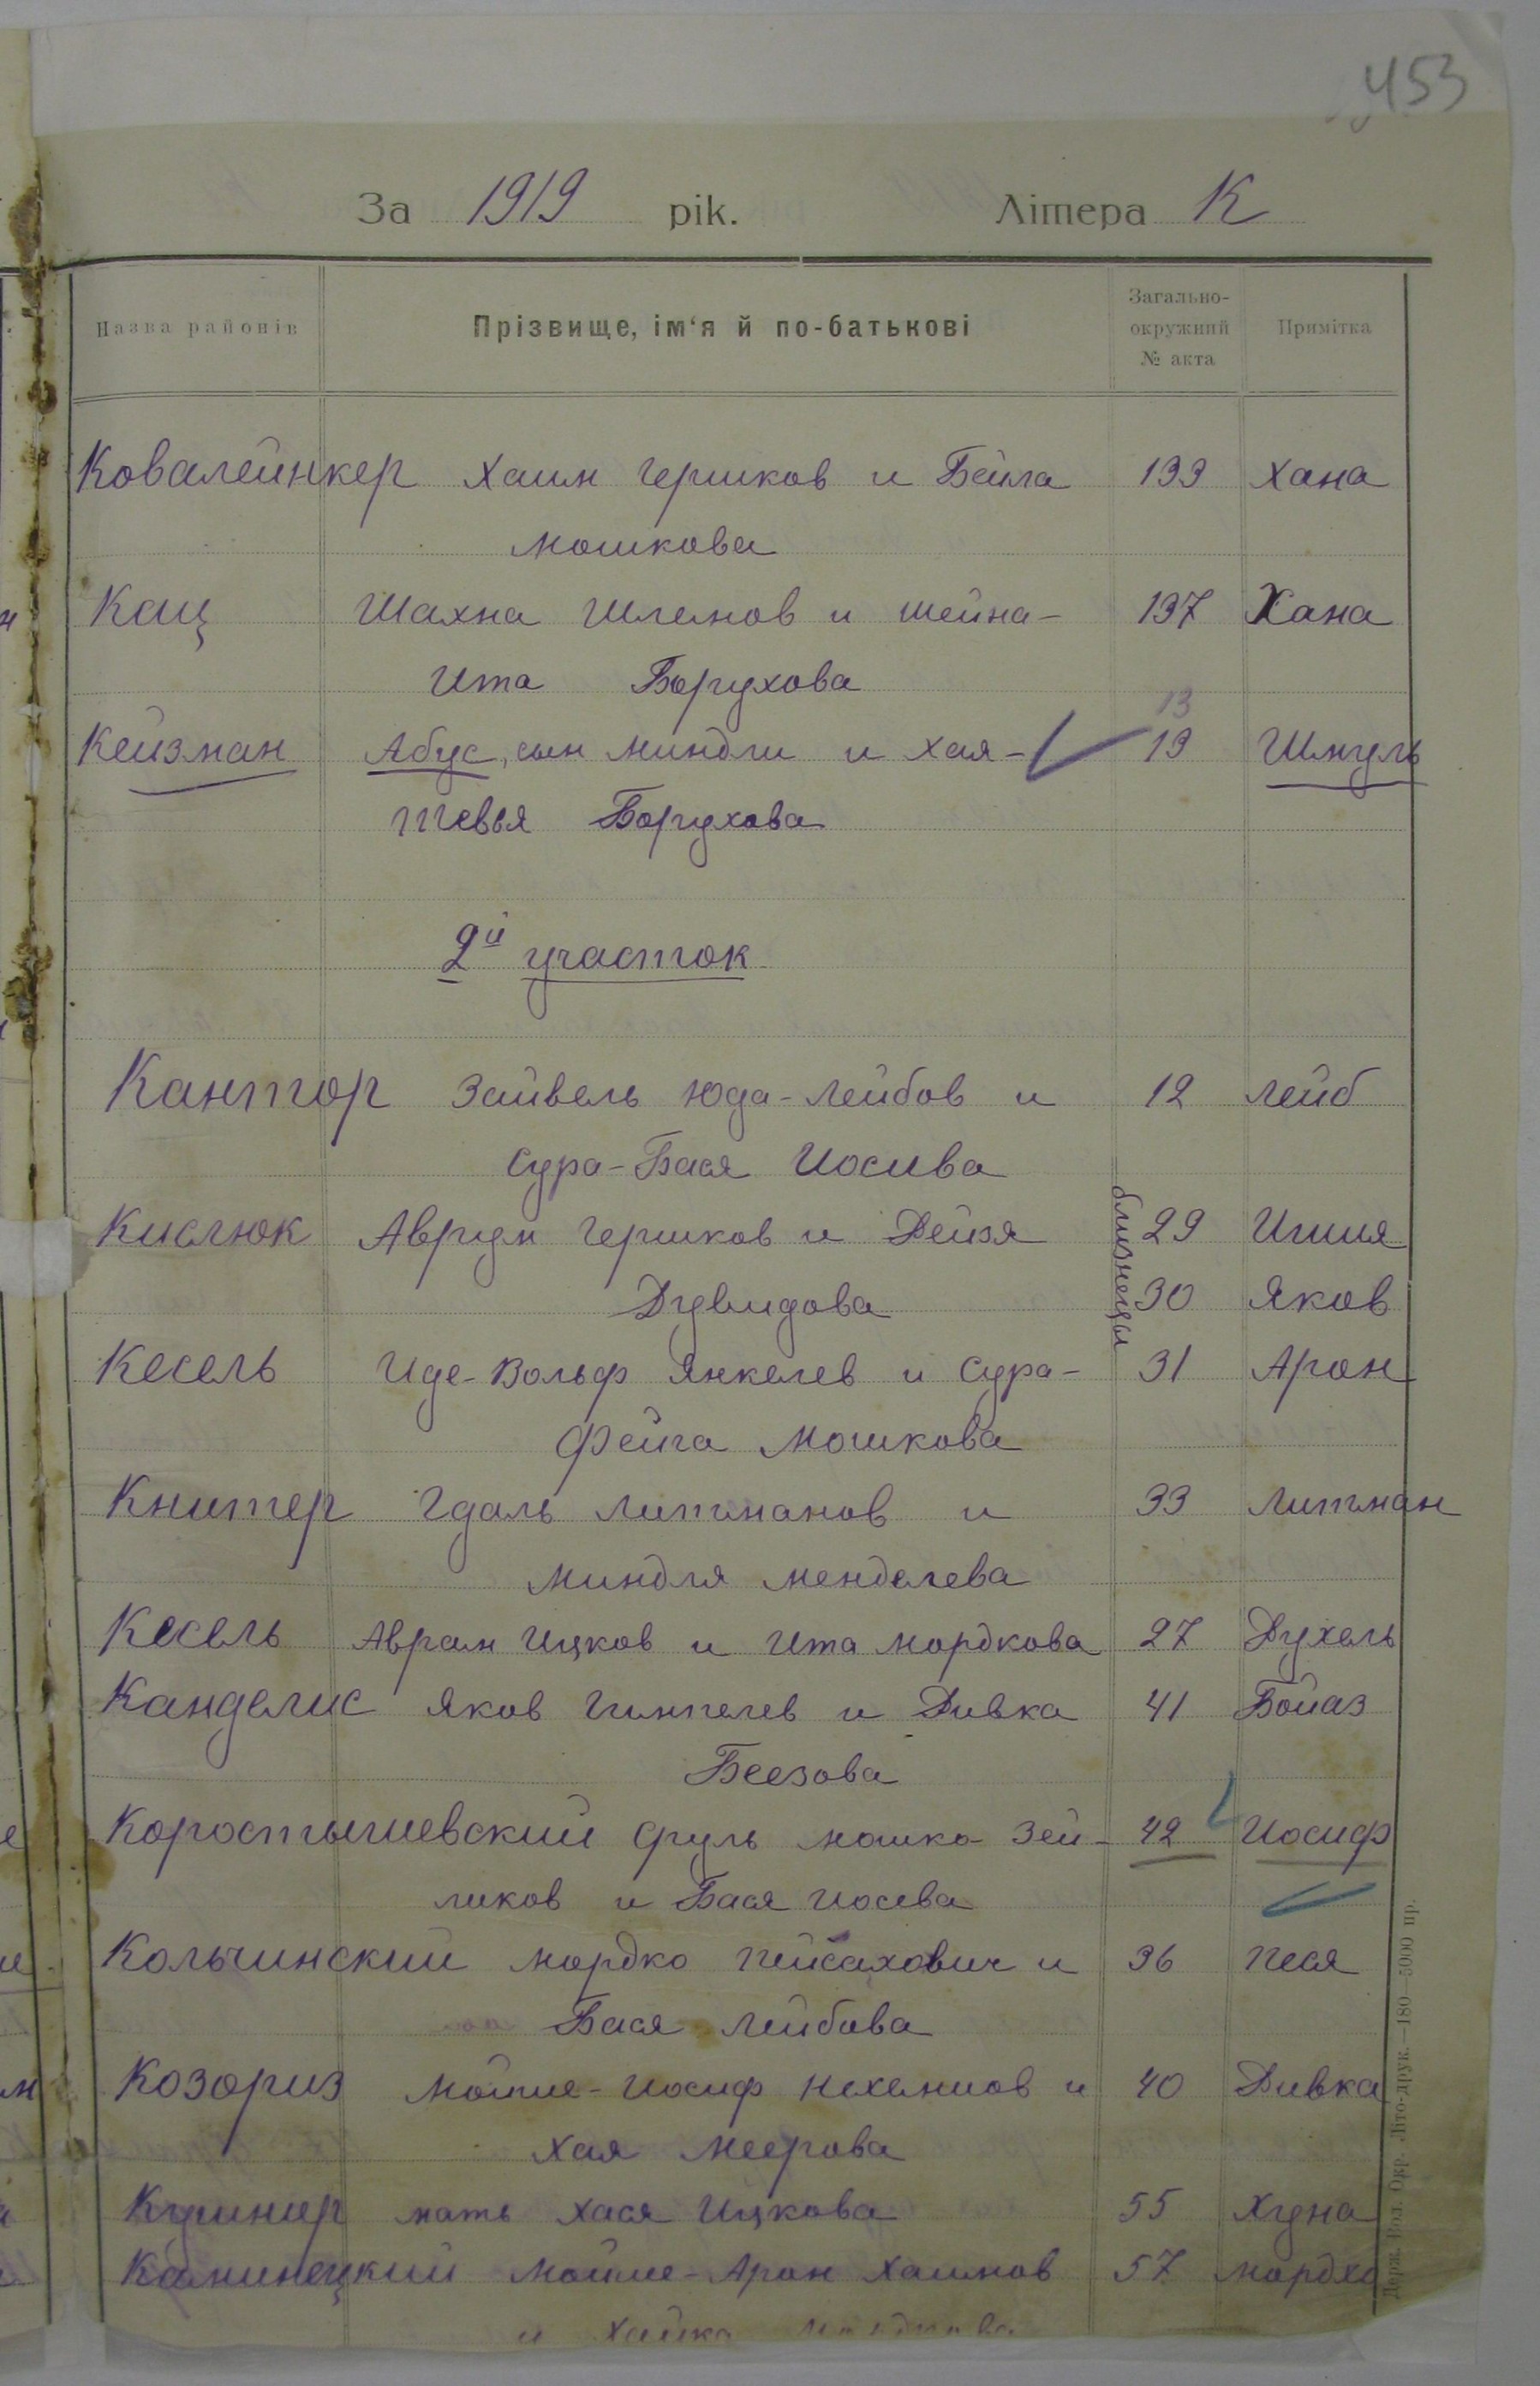 453
За 1919 рік. Літера К
Назва районів Прізвище, ім'я й по-батькові Загально-окружний № акта Примітка
Ковалейнкер Хаим Гершков и Бейла 199 Хана
Мошкова
Кац Шахна Шлемов и Шейна- 197 Хана
Ита Борухова
13
Кейзман Абус, сын Миндли и Хая- 19 Шмуль
Шевья Борухова
2й участок
Кантор Зайвель Юда-Лейбов и 12 Лейб
Сура-Бася Иосива
Кислюк Аврум Гершков и Дейзя 29 Игиия
близнецы
Дувидова 30 Яков
Кесель Иде-Вольф Янкелев и Сура- 31 Арон
Фейга Мошкова
Книтер Гдаль Липманов и 33 Липман
Миндля Менделева
Кесель Аврам Ицков и Ита Мордкова 27 Рухель
Канделис Яков Гимпелев и Ривка 41 Бойаз
Беезова
Коростышевский Сруль Мошко Зей- 42 Иосиф
ликов и Бася Иосева
Кольчинский Мордко Пейсахович и 36 Песя
Бася Лейбова
Козориз Мойше-Иосиф Нехемиов и 40 Ривка
Хая Меерова
Кушнир мать Хася Ицкова 55 Хуна
Каминецкий Мойше-Арон Хаимов 57 Мордхо
и Хайка
Держ. Вол. Окр. Літо-друк.—180—5000 пр.